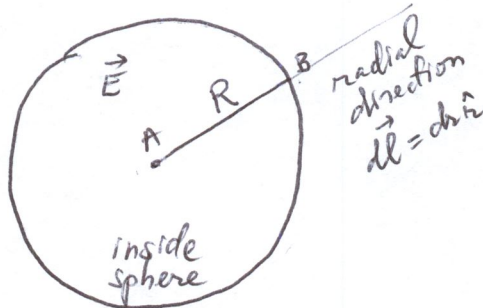 E⃗
B
R
A
radial
direction
d⃗l = dr r̂
inside
sphere